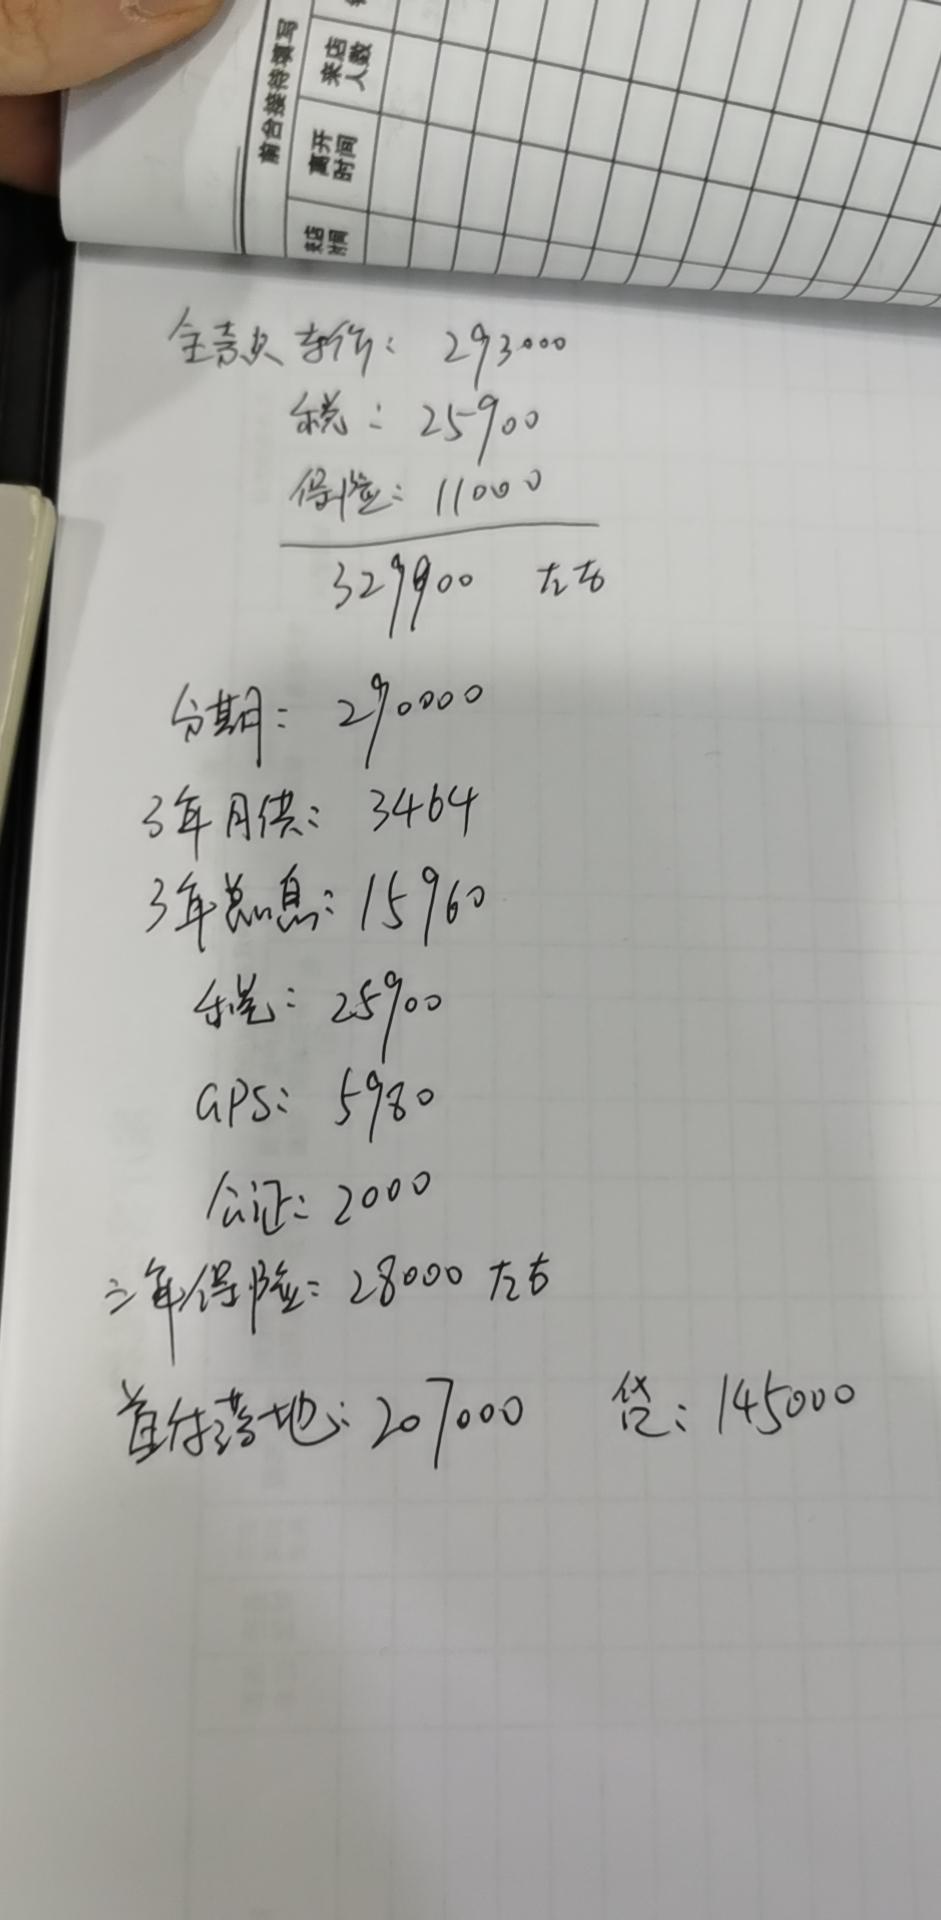 前台接待填写
来店人数
离开时间
来店时间
全款 车价: 293000
税: 25900
保险: 11000
329900 左右
分期: 290000
3年月供: 3464
3年总息: 15960
税: 25900
GPS: 5980
公证: 2000
三年保险: 28000 左右
首付落地: 207000 贷: 145000